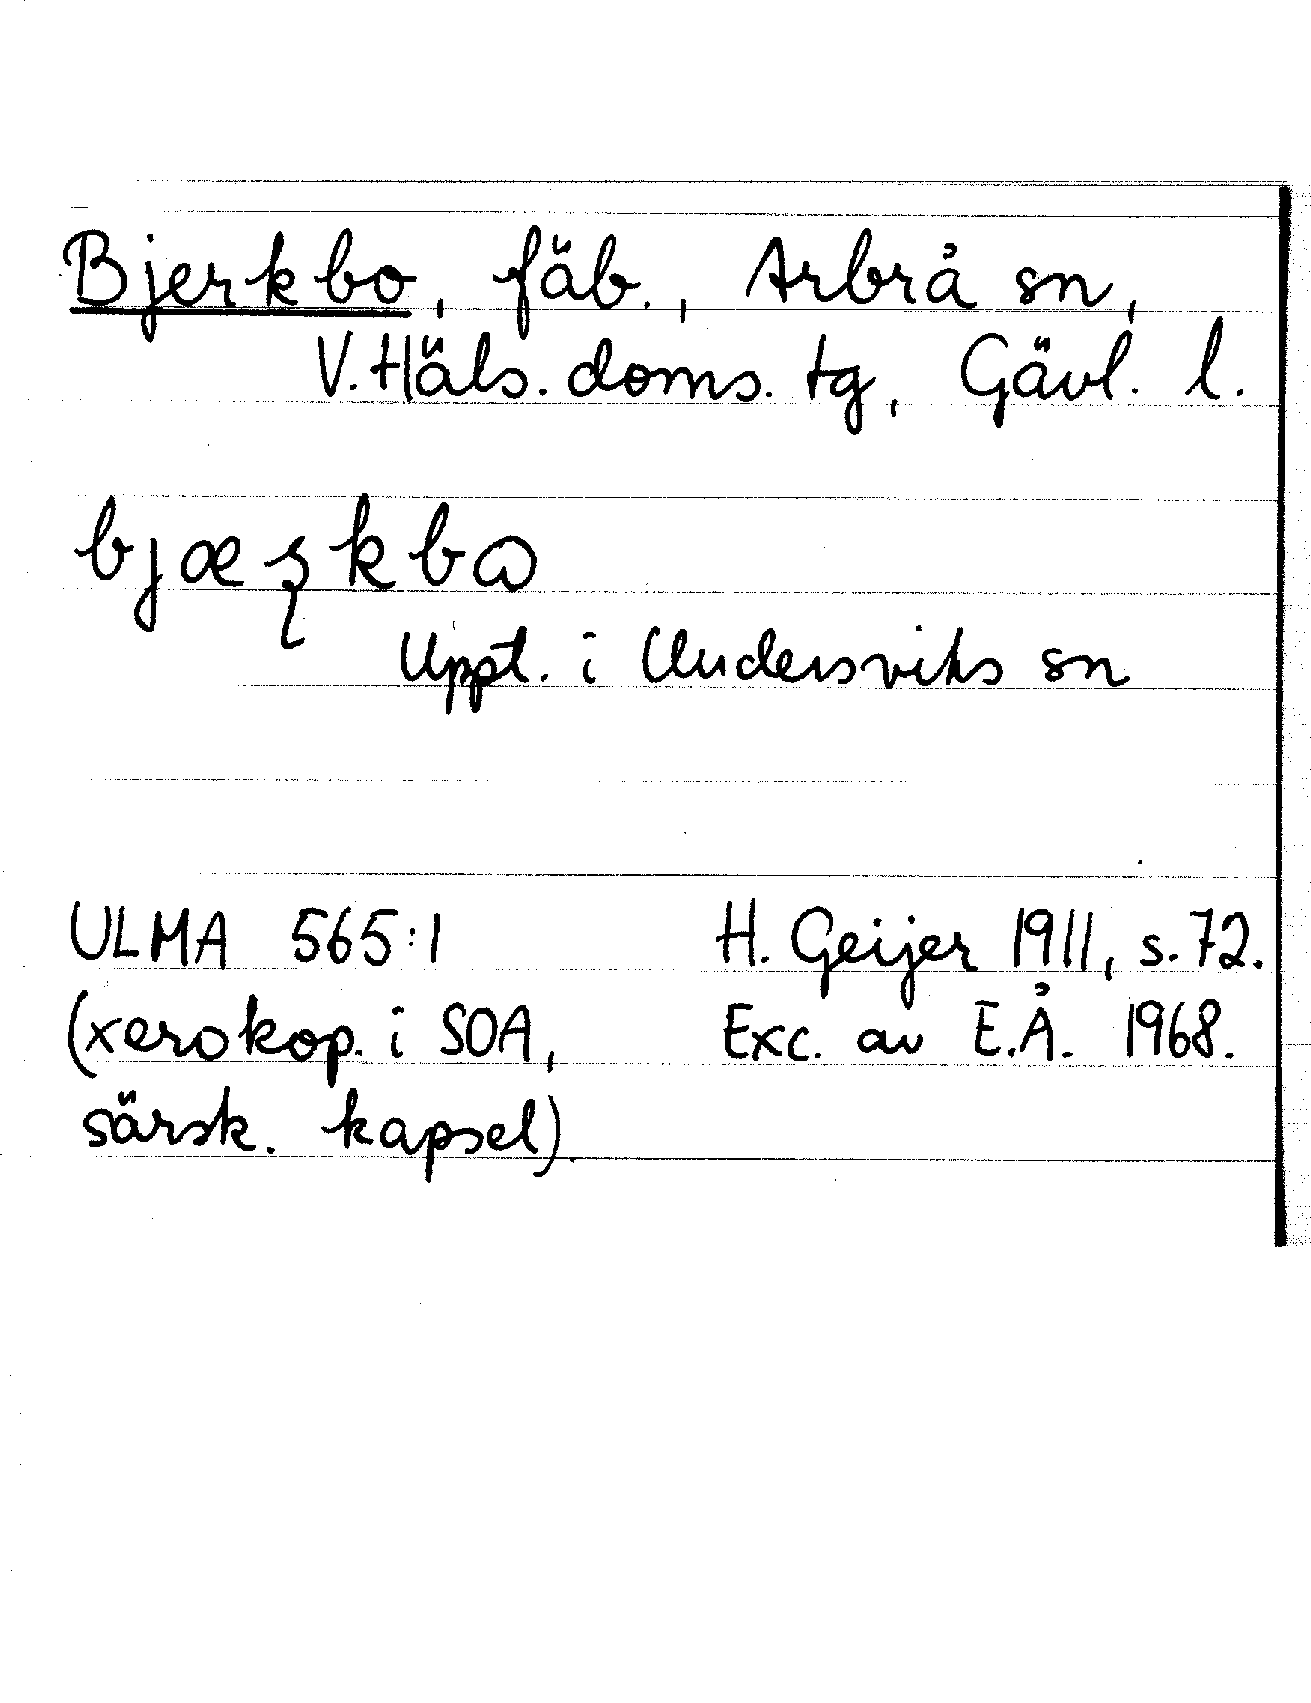 Bjerkbo, fäb., Arbrå sn,
V. Häls. doms. tg, Gävl. l.
Uppt. i Undersviks sn
ULMA 565:1 H. Geijer 1911, s. 72.
(xerokop. i SOA, Exc. av E.Å. 1968.
särsk. kapsel).